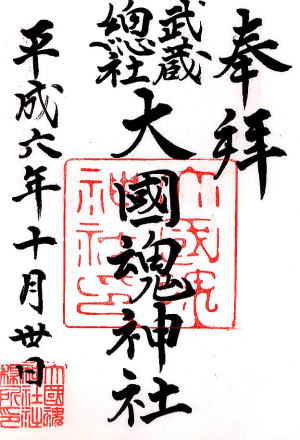 奉拝
武蔵
總社
大國魂神社
平成六年十月卅日
大國魂
神社印